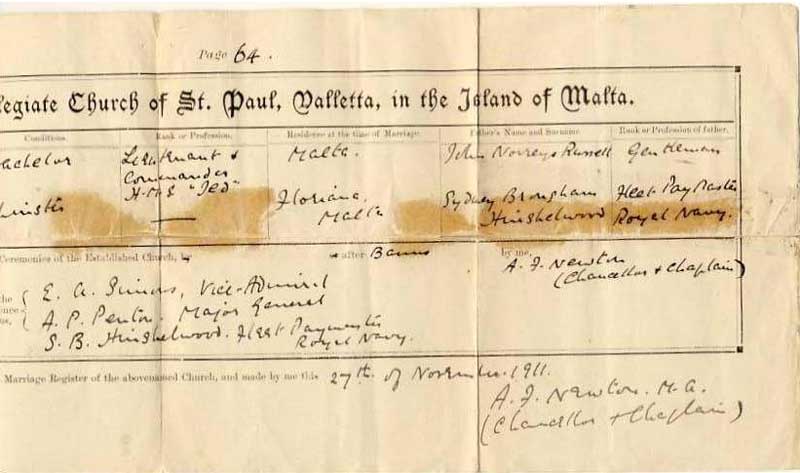 Page 64.
legiate Church of St. Paul, Valletta, in the Island of Malta.
Conditions. Rank or Profession. Residence at the time of Marriage. Father's Name and Surname. Rank or Profession of father.
achelor Lieutenant & Malta. John Norreys Russell Gentleman
Commander
H.M.S "Jed"
inster — Floriana, Sydney Brougham Fleet Paymaster
Malta Hinshelwood Royal Navy.
Ceremonies of the Established Church, by or after Banns by me,
A. F. Newton
(Chancellor & Chaplain)
the E. A. Simons, Vice-Admiral
ence A. P. Penton. Major General
us, S. B. Hinshelwood. Fleet Paymaster
Royal Navy.
Marriage Register of the abovenamed Church, and made by me this 27th. of November. 1911.
A. F. Newton. M.A.
(Chancellor & Chaplain)